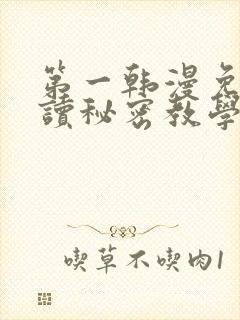 第一韩漫免
讀秘密教學
喫草不喫肉1